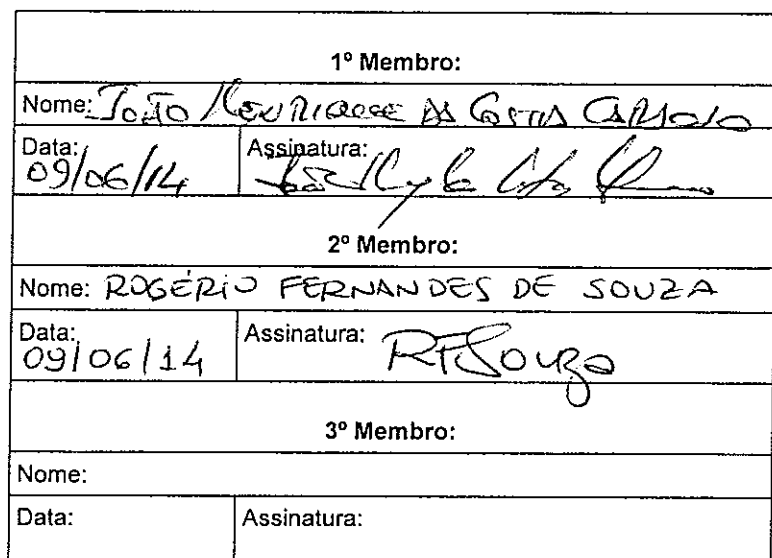 1º Membro:
Nome: João Henrique da Costa Cardoso
Data: Assinatura:
09/06/14
2º Membro:
Nome: ROGÉRIO FERNANDES DE SOUZA
Data: Assinatura: RFSouza
09/06/14
3º Membro:
Nome:
Data: Assinatura: